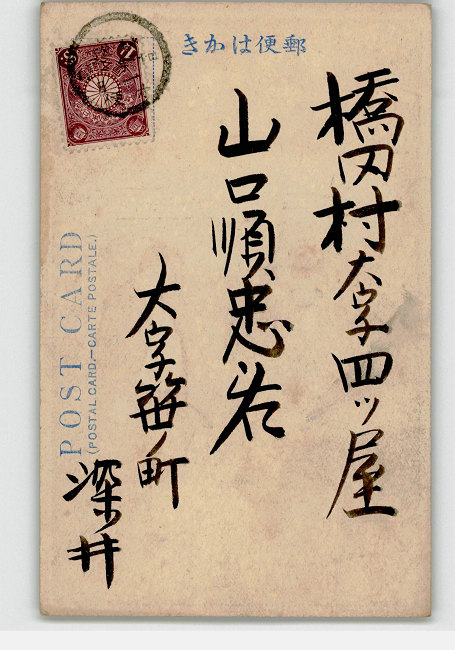 きかは便郵
橋田村大字四ツ屋
山口順忠君
大字笹ノ町
深井
POST CARD
(POSTAL CARD.—CARTE POSTALE.)